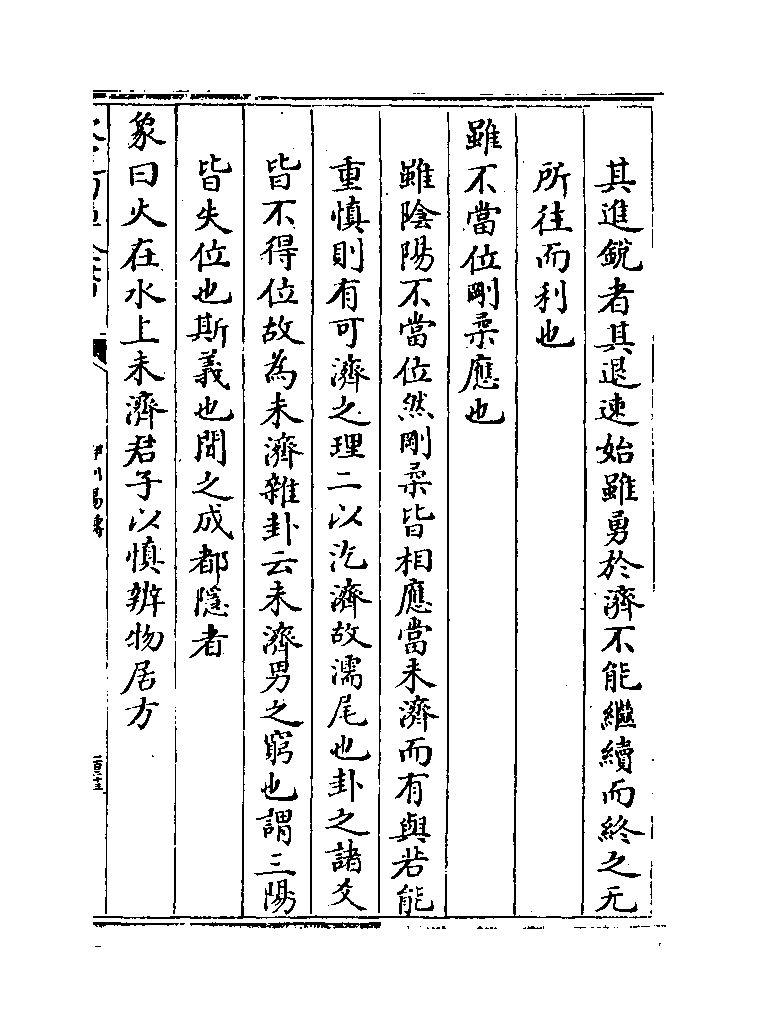 其進銳者其退速始雖勇於濟不能繼續而終之无
所往而利也
雖不當位剛柔應也
雖陰陽不當位然剛柔皆相應當未濟而有與若能
重慎則有可濟之理二以汔濟故濡尾也卦之諸爻
皆不得位故為未濟雜卦云未濟男之窮也謂三陽
皆失位也斯義也聞之成都隱者
象曰火在水上未濟君子以慎辨物居方
伊川易傳